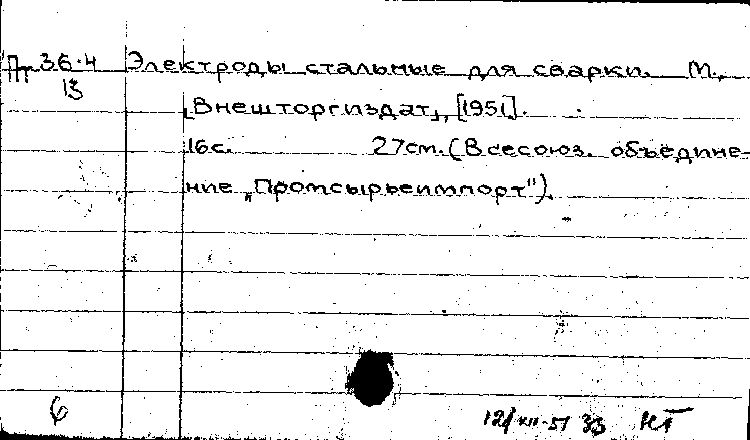 Пт 36-4 Электроды стальные для сварки. М.,
13
[Внешторгиздат], [1951].
16с. 27см. (Всесоюз. объедине-
ние „Промсырьеимпорт").
6
12/XII-51 33 НТ